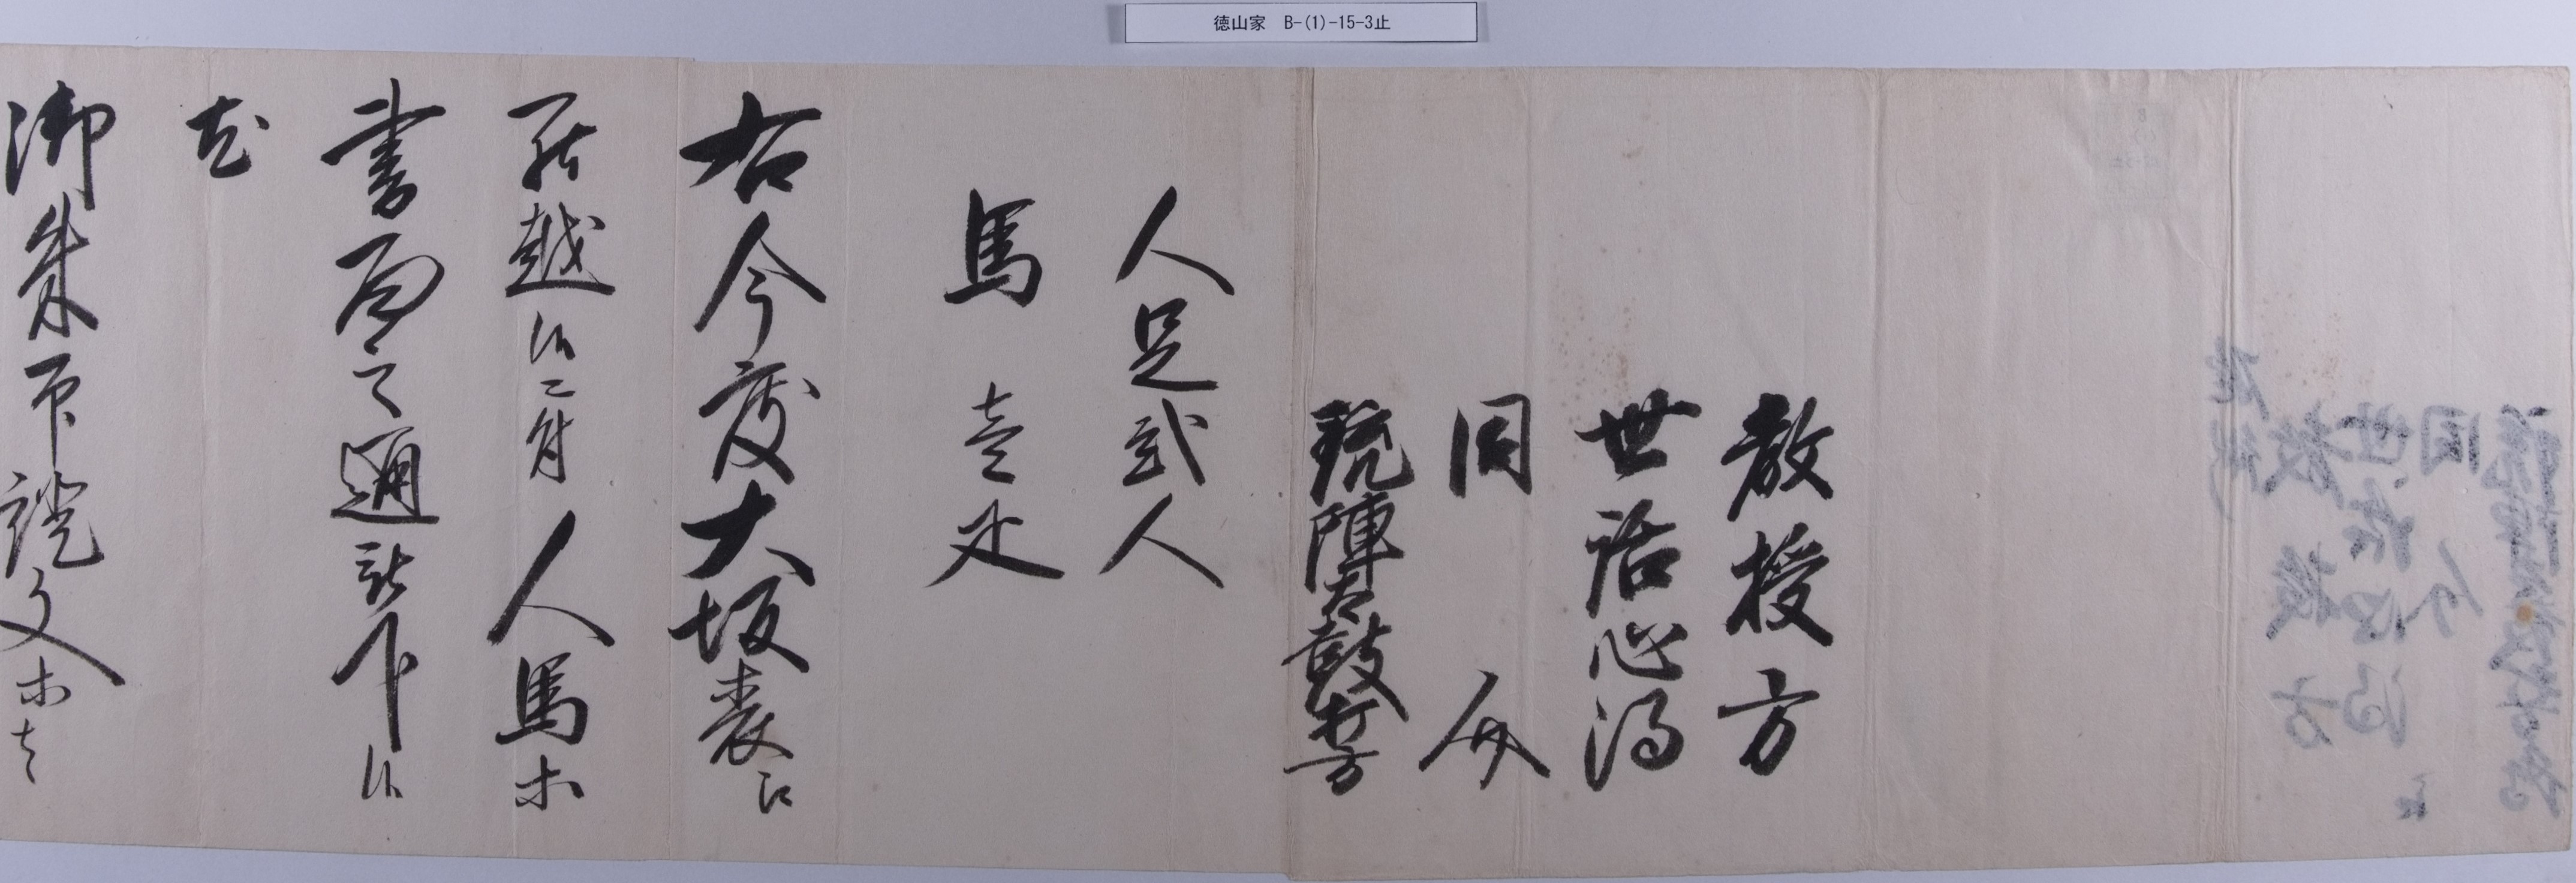 徳山家 B-(1)-15-3止
教授方
世話心得
同介
銃陣太鼓打方
人足弐人
馬 壱疋
右今度大坂表江
罷越候ニ付人馬等
書面之通被下候
尤
御朱印証文等者